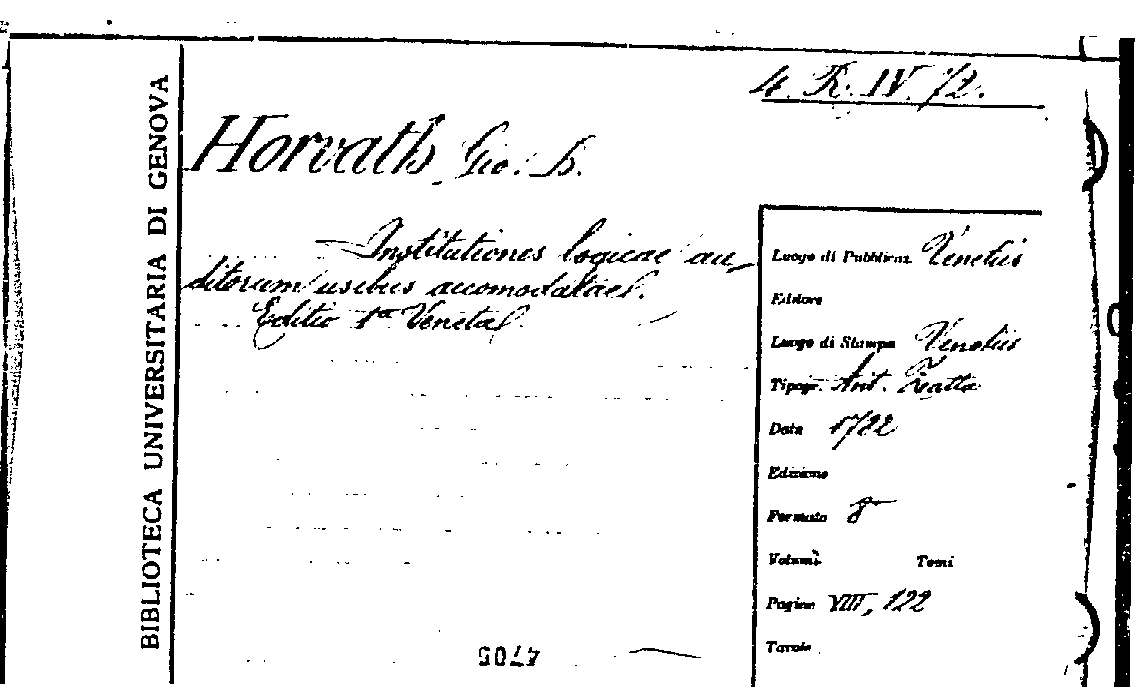 BIBLIOTECA UNIVERSITARIA DI GENOVA
4. R. IV. 72.
Horvath Gio. B.
Institutiones logicae au-
ditorum usibus accomodatae.
Editio 1ª Veneta
Luogo di Pubblicaz. Venetiis
Editore
Luogo di Stampa Venetiis
Tipogr. Ant. Zatta
Data
Edizione
Formato 8º
Volumi Tomi
Pagine VIII, 122
Tavole
4705